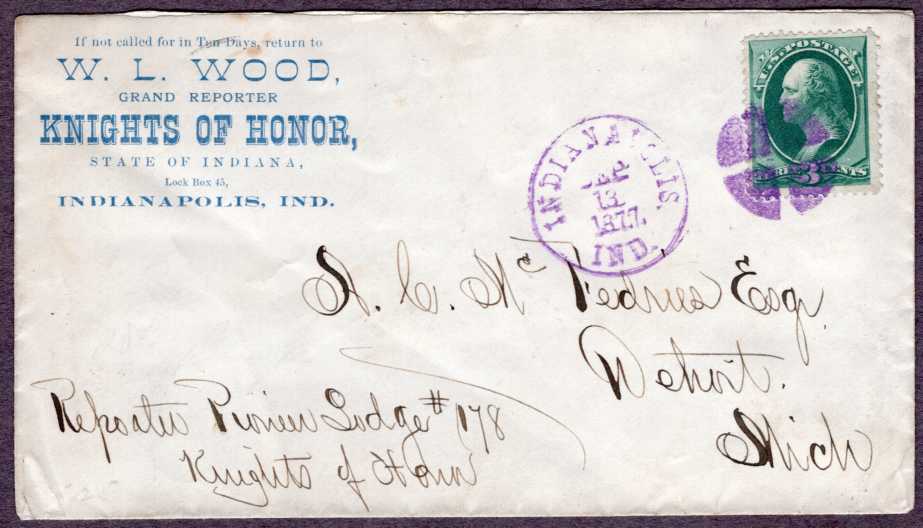 If not called for in Ten Days, return to
W. L. WOOD,
GRAND REPORTER
KNIGHTS OF HONOR,
STATE OF INDIANA,
Lock Box 45,
INDIANAPOLIS, IND.
U.S. POSTAGE
THREE 3 CENTS
INDIANAPOLIS.
SEP
13
1877.
IND.
A. C. Mc Fedries Esq
Detroit.
Mich
Reporter Pioneer Lodge # 178
Knights of Honor